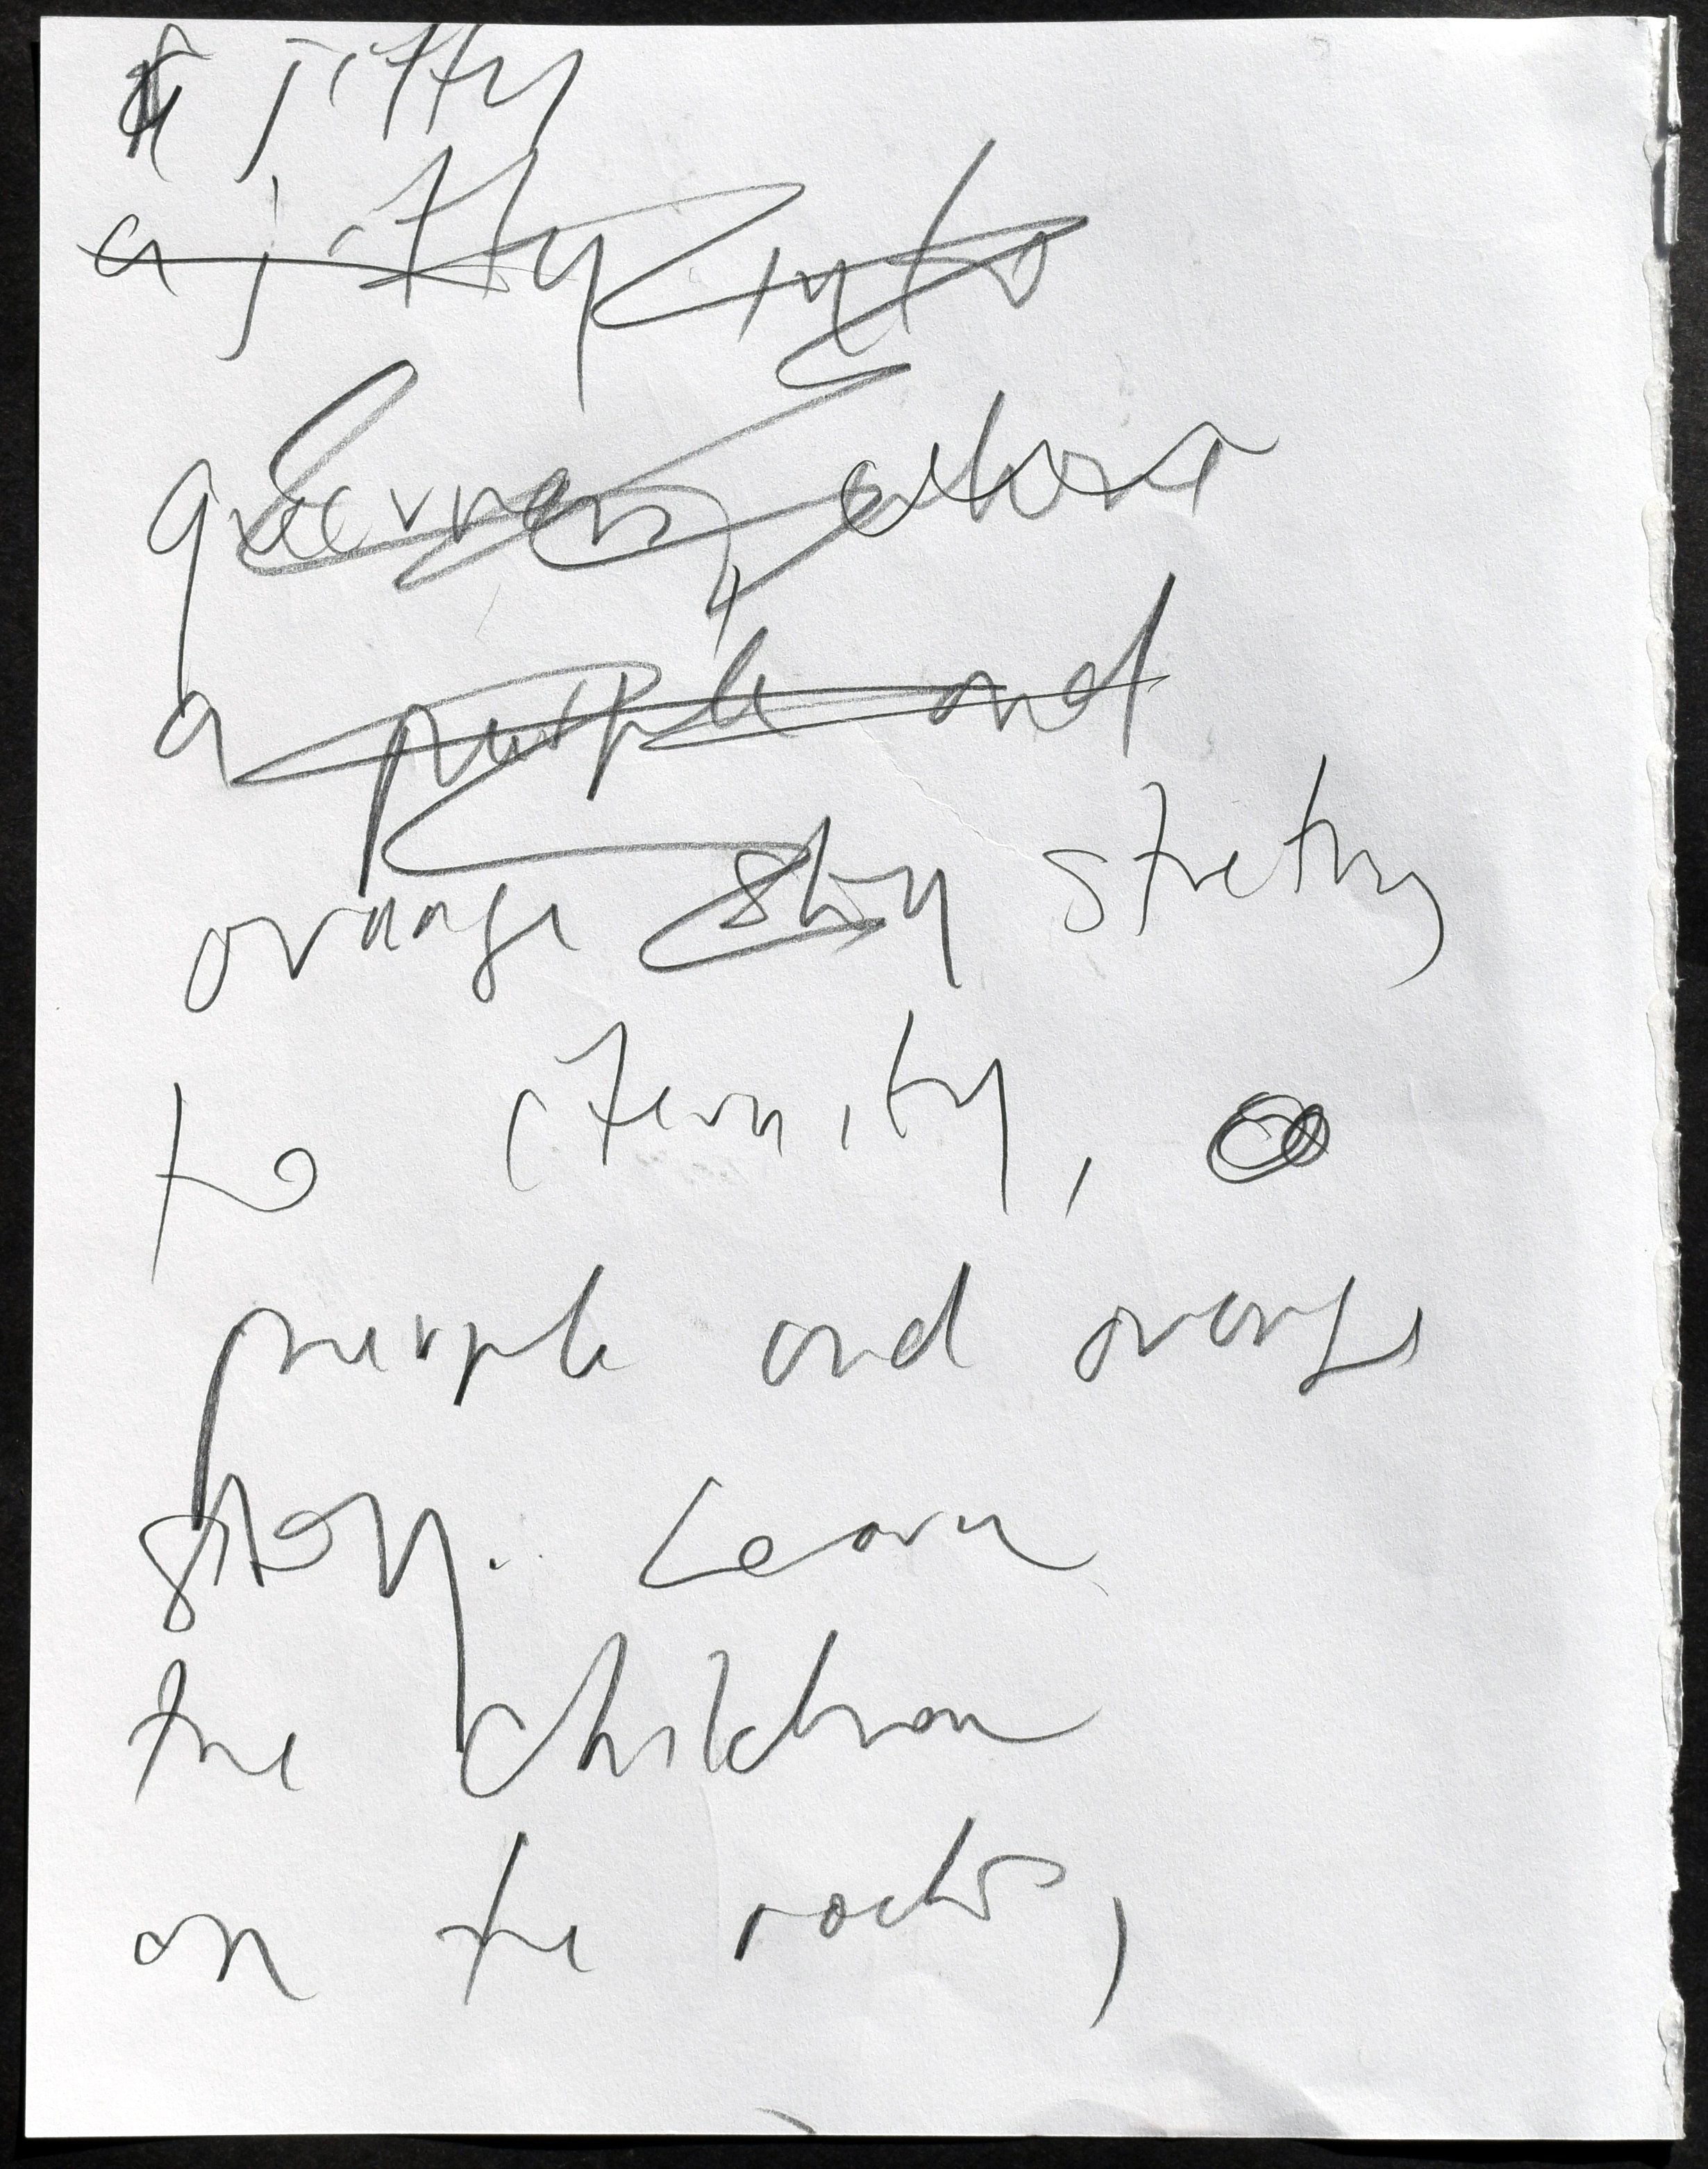 a jiffy
a jiffy into
queerness, above
a purple and
orange sky stretchy
to eternity,
purple and orange
sky. Learn
the children
on the rocks,